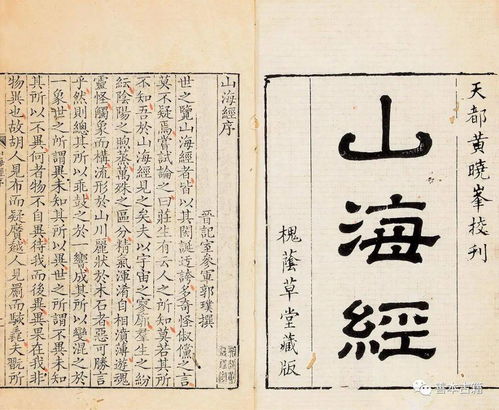 天都黃曉峯校刊
山海經
槐蔭草堂藏版
山海經序
晉記室參軍郭璞撰
世之覽山海經者皆以其閎誕迂誇多奇怪俶儻之言
莫不疑焉嘗試論之曰莊生有云人之所知莫若其所
不知吾於山海經見之矣夫以宇宙之寥廓羣生之紛
紜陰陽之煦蒸萬殊之區分精氣渾淆自相濆薄遊魂
靈怪觸象而構流形於山川麗狀於木石者惡可勝言
乎然則總其所以乖鼓之於一響成其所以變混之於
一象世之所謂異未知其所以異世之所謂不異未知
其所以不異何者物不自異待我而後異異果在我非
物異也故胡人見布而疑黂越人見罽而駭毳夫翫所
善本古籍